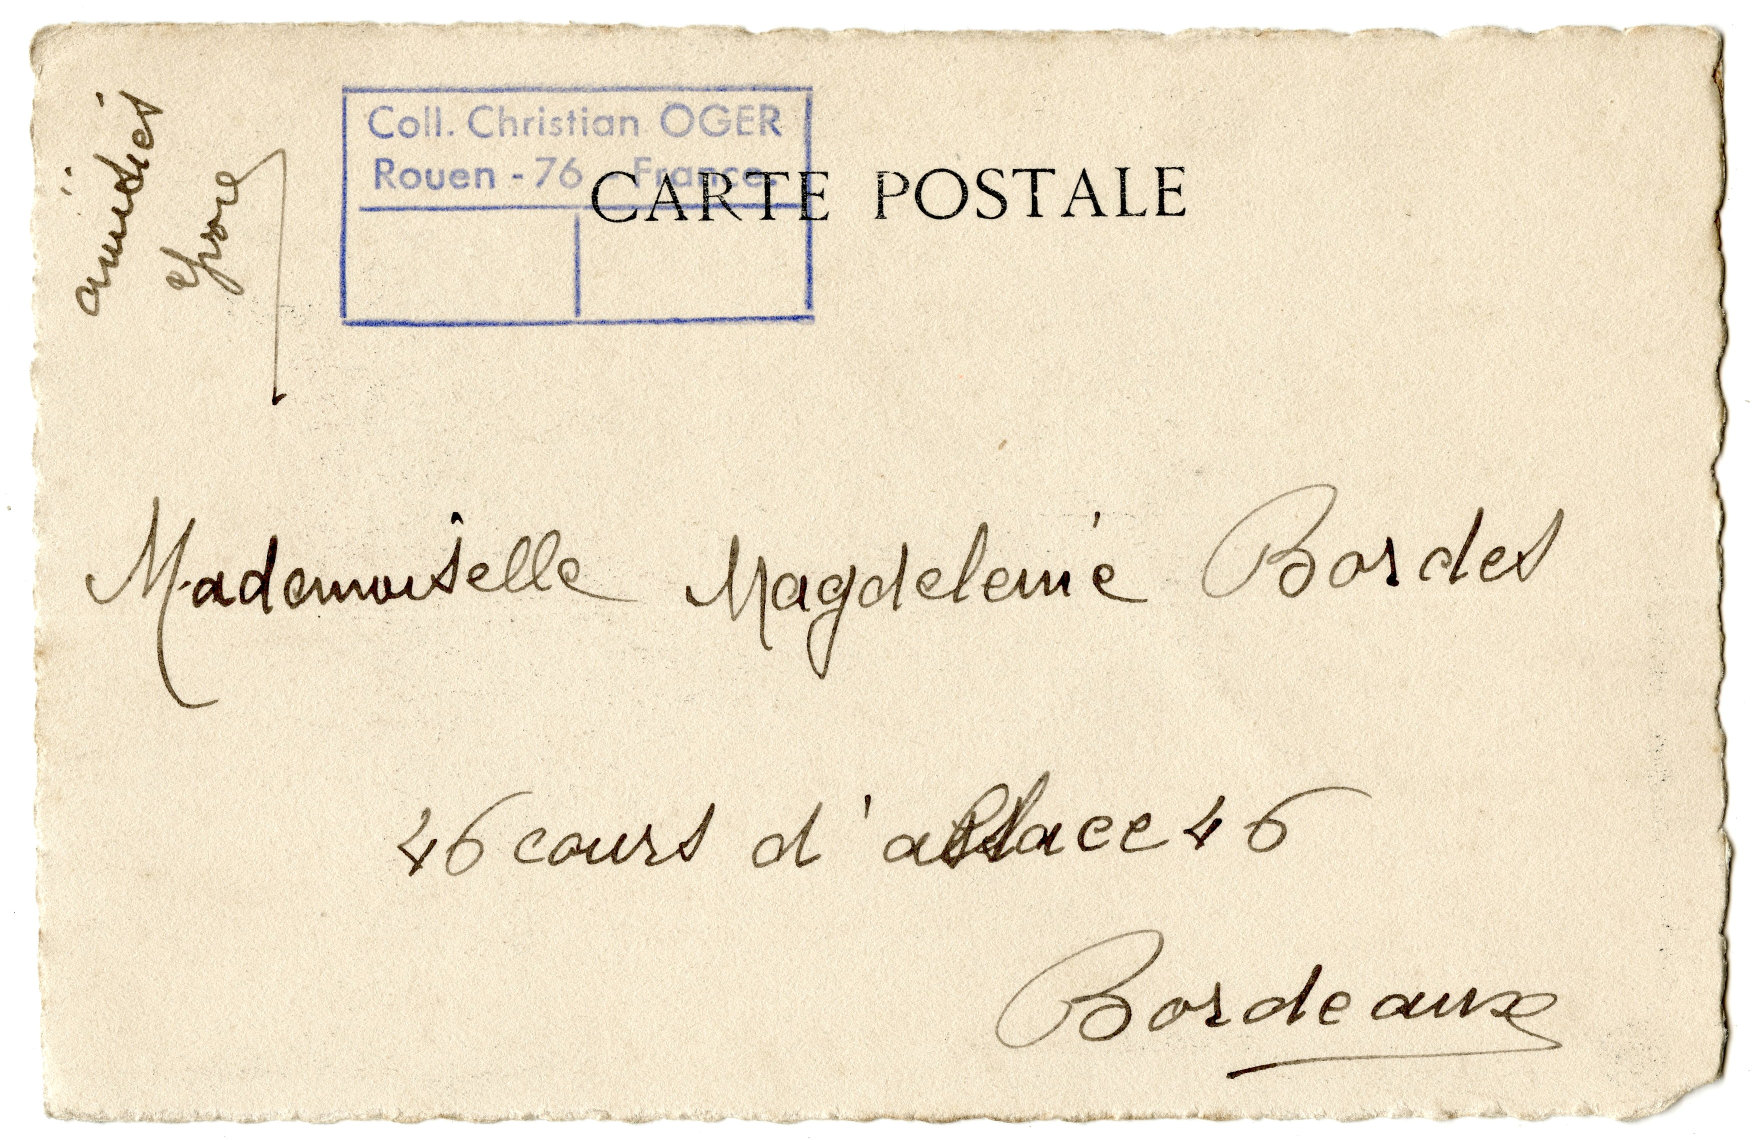 amitiés
Coll. Christian OGER
Rouen - 76 France.
CARTE POSTALE
Mademoiselle Magdeleine Bordes
46 cours d'alsace 46
Bordeaux